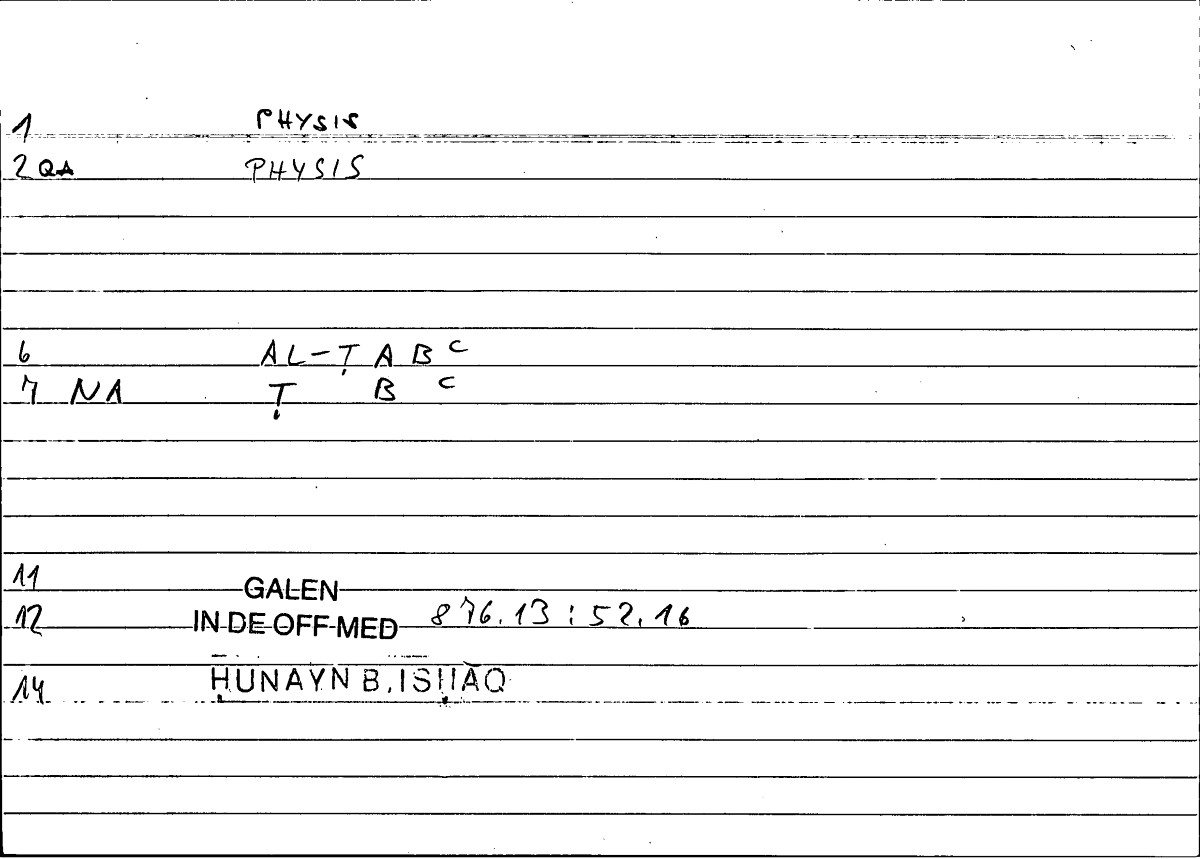 1 PHYSIS
2 QA PHYSIS
6 AL-ṬABᶜ
7 NA Ṭ B ᶜ
11 GALEN
12 IN DE OFF MED 876.13 : 52.16
14 ḤUNAYN B. ISḤĀQ